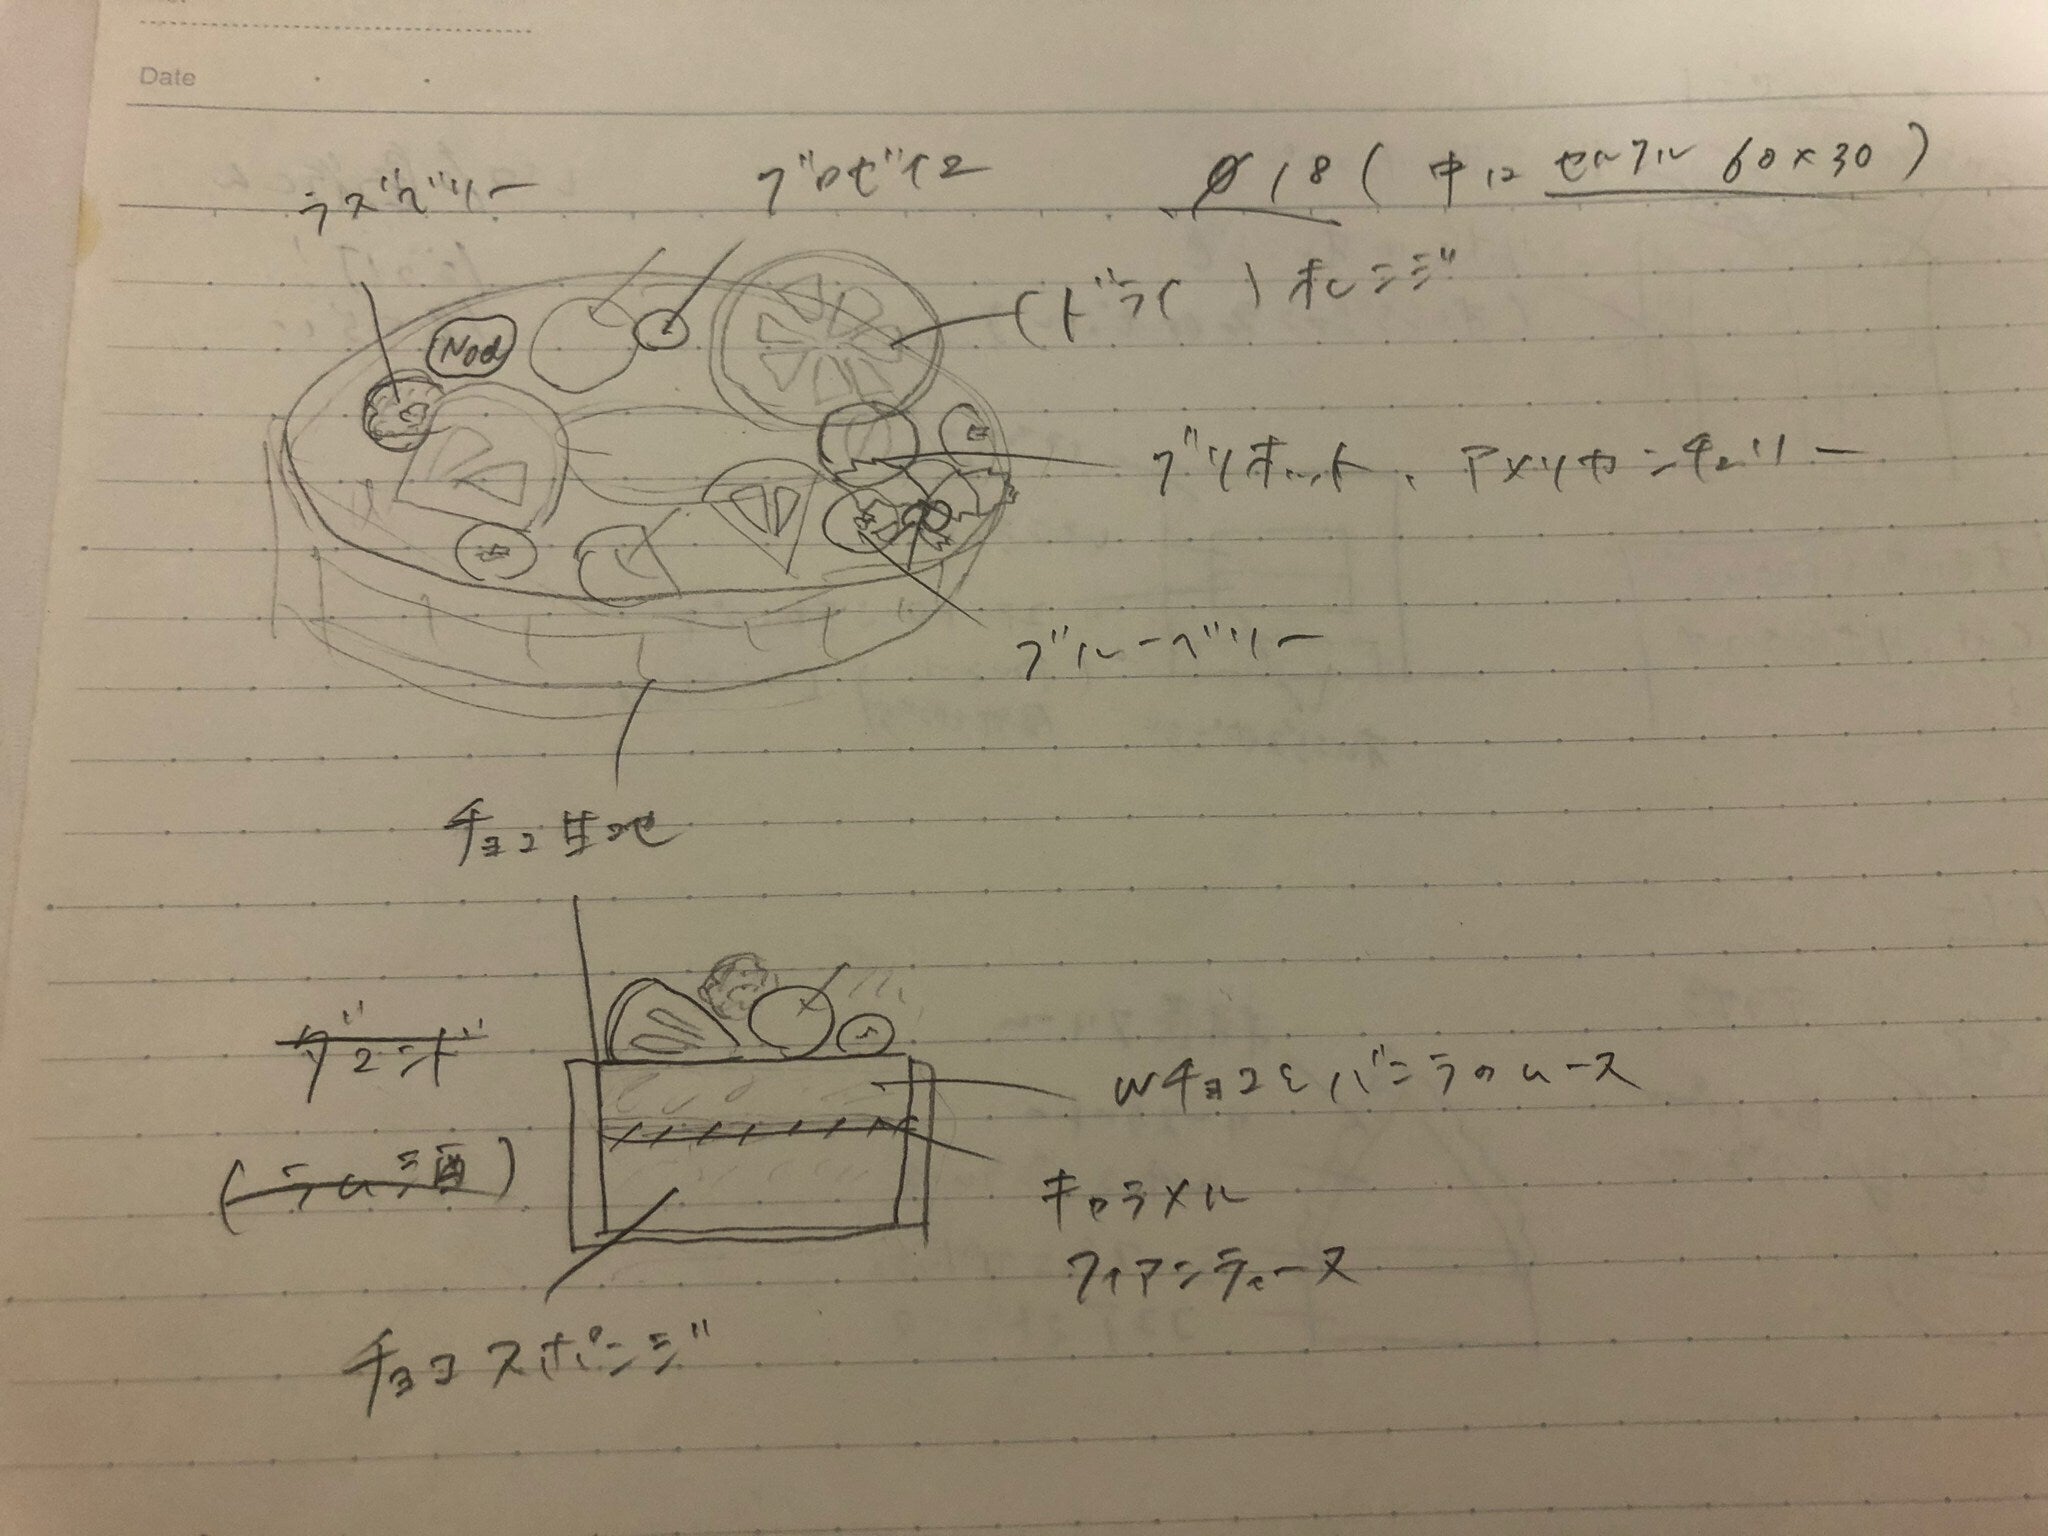 Date
ラズベリー
グロゼイユ
φ18(中にセルクル 60×30)
(ドライ)オレンジ
Noel
グリオット、アメリカンチェリー
ブルーベリー
チョコ生地
Wチョコとバニラのムース
(ラム酒)
キャラメル
フィアンティーヌ
チョコスポンジ